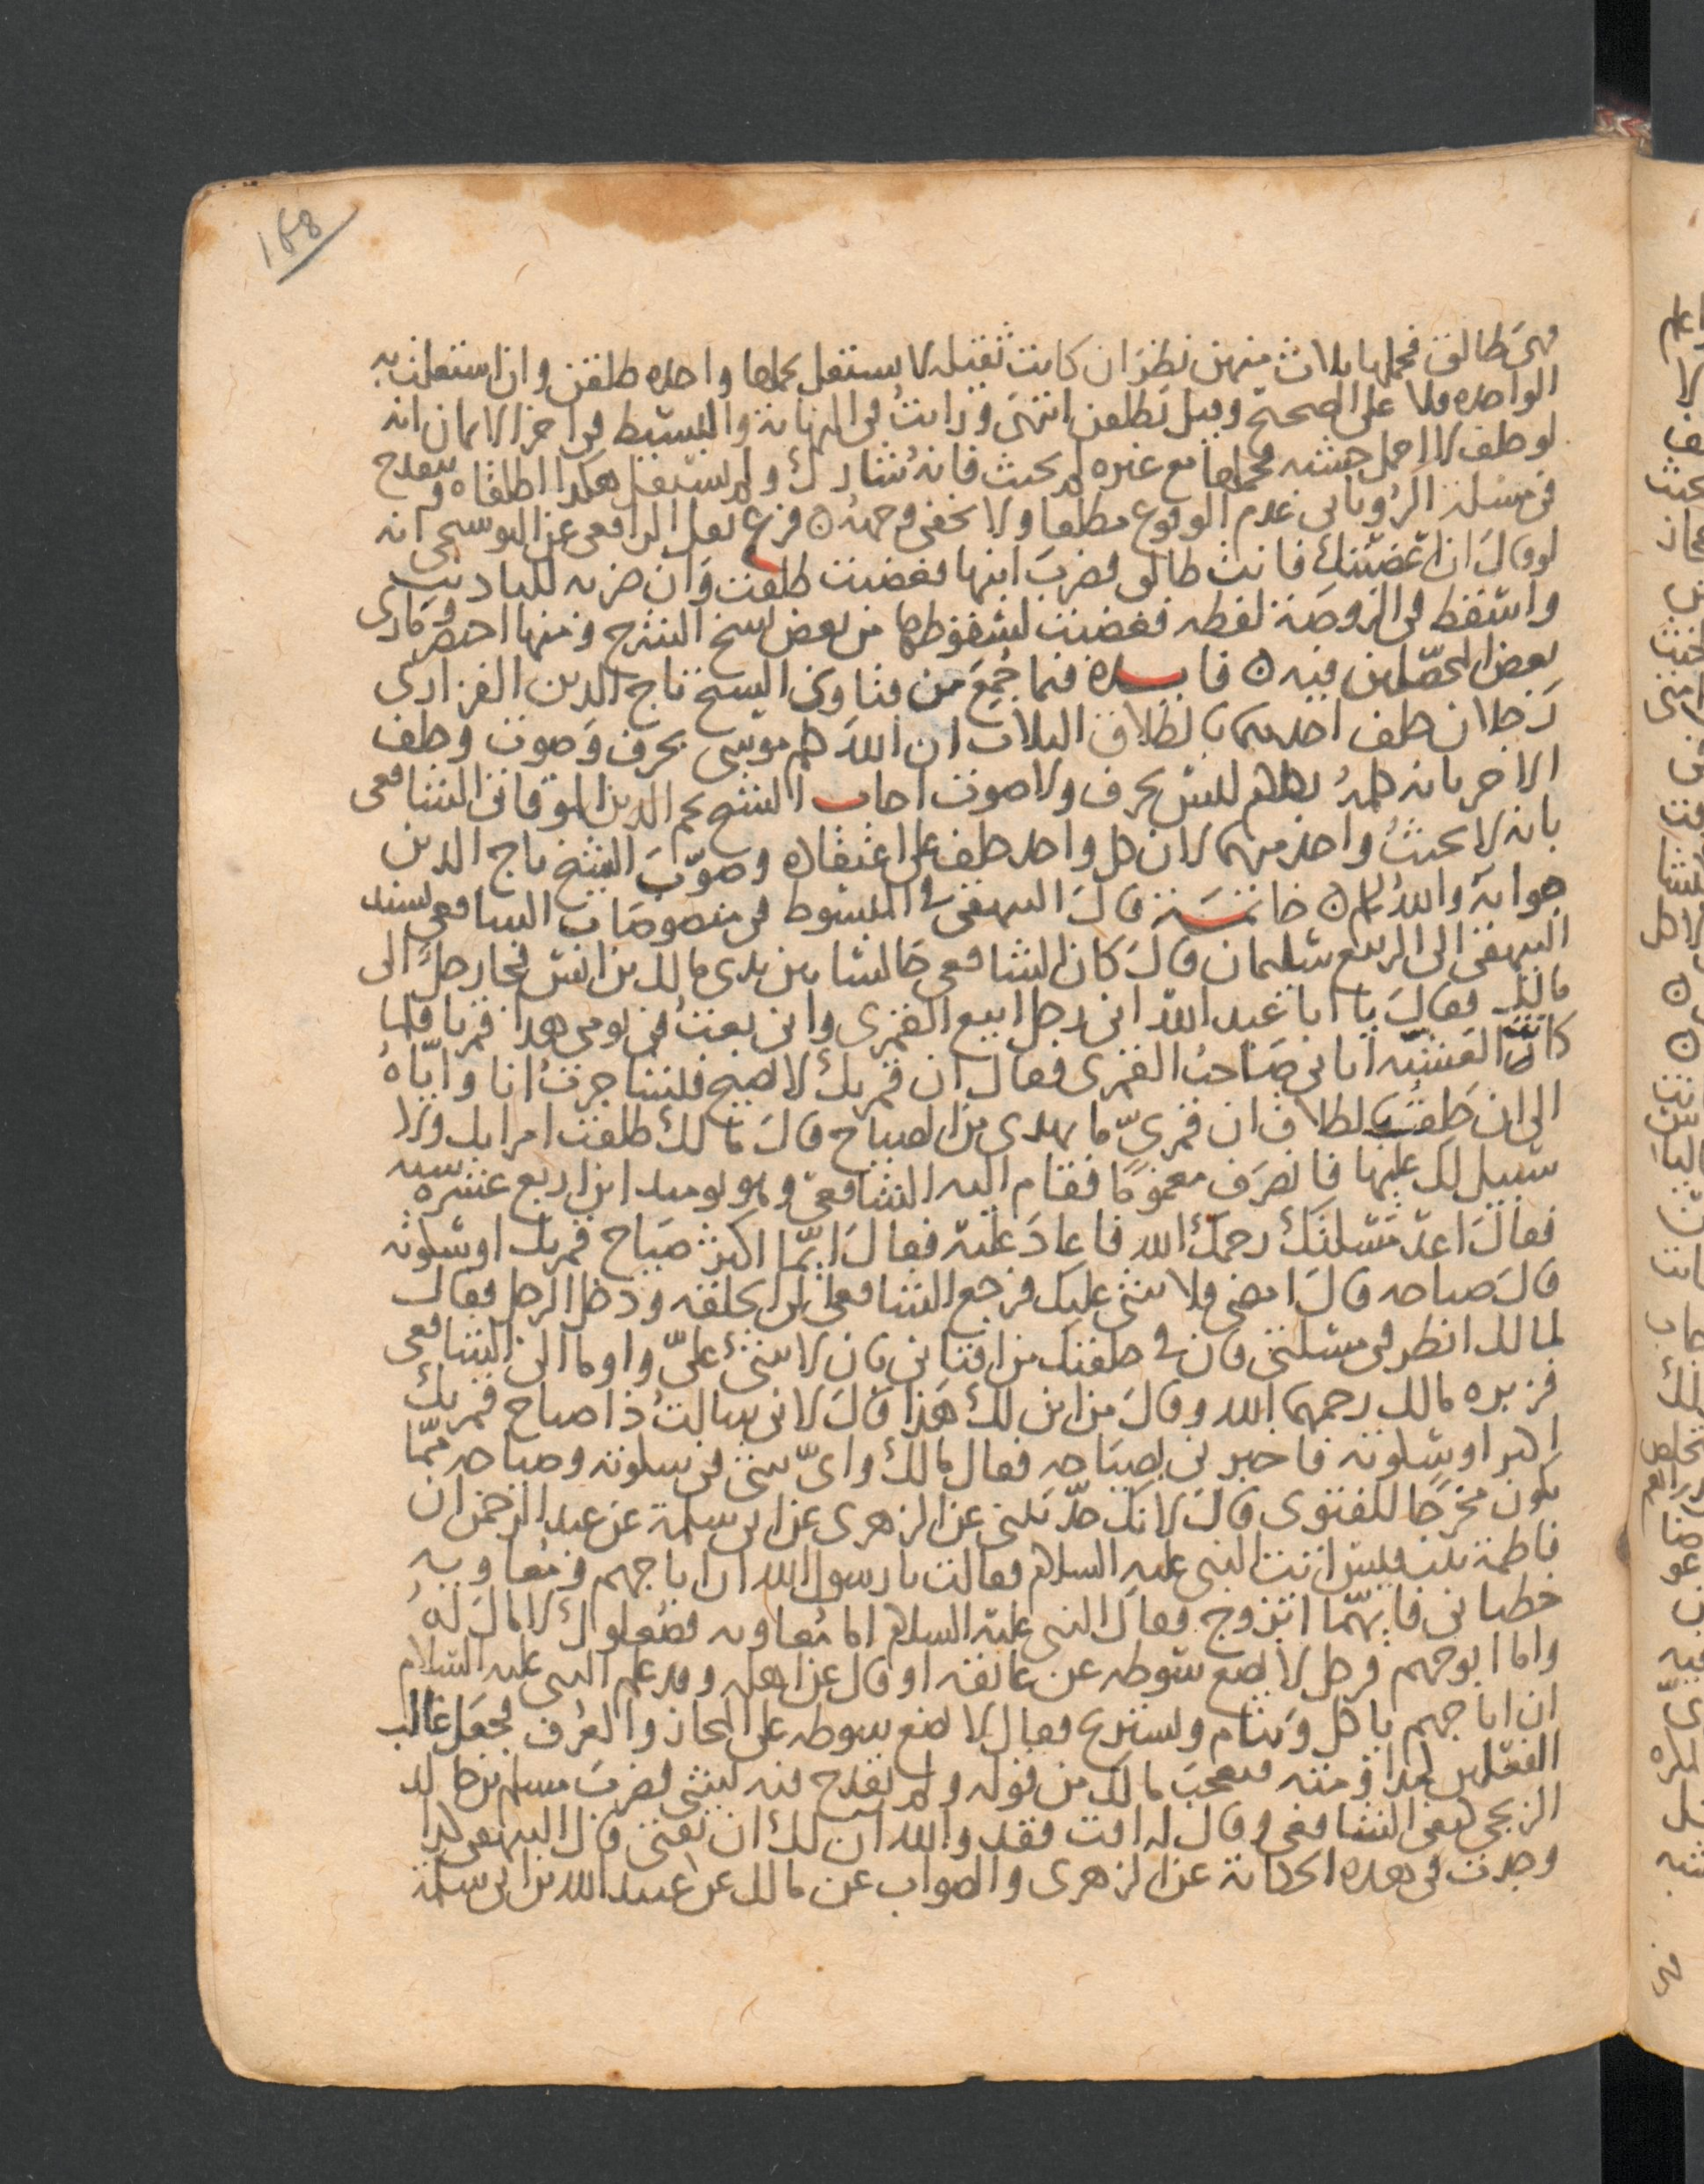 168
فهي طالق فحملها ثلاث منهن نظر ان كانت ثقيله لا يستقل بحملها واحده طلقن وان استقلت به
الواحده فلا على الصحيح وقيل تطلقن انتهى ورايت في النهاية والبسيط في اخر الايمان انه
لو حلف لا احمل خشبه فحملها مع غيره لم يحنث فانه شارك ولم يستقل هكذا اطلقاه وينقدح
في مسئلة الروياني عدم الوقوع مطلقا ولا يخفى وجهه ن فرع نقل الرافعي عن البوسنجي انه
لو قال ان اغضبتك فانت طالق فضرب ابنها فغضبت طلقت وان ضربه للتاديب
واسقط في الروضة لفظه فغضبت لسقوطها من بعض نسخ الشرح ومنها اختصر وتمارى
بعض المحصلين فيه ن فايده فيما جمع من فتاوى الشيخ تاج الدين الفزاري
رجلان حلف احدهما بالطلاق الثلاث ان الله كلم موسى بحرف وصوت وحلف
الاخر بانه كلمه بكلام ليس بحرف ولا صوت اجاب الشيخ نجم الدين الموقاني الشافعي
بانه لا يحنث واحد منهما لان كل واحد حلف على اعتقاده وصوب الشيخ تاج الدين
جوابه والله اعلم ن خاتمة قال البيهقي في المبسوط في منصوصات الشافعي بسند
البيهقي الى الربيع سليمان قال كان الشافعي جالسا بين يدي مالك بن انس فجا رجل الى
مالك فقال يا ابا عبد الله اني رجل ابيع القمري واني بعت في يومي هذا قمريا فلما
كان العشية اتاني صاحب القمري فقال ان قمريك لا يصيح فتشاجرت انا واياه
الى ان حلفت بالطلاق ان قمري ما يهدى من الصياح قال مالك طلقت امراتك ولا
سبيل لك عليها فانصرف مغموما فقام اليه الشافعي وهو يوميذ ابن اربع عشره سنه
فقال اعد مسئلتك رحمك الله فاعاد عليه فقال ايما اكثر صياح قمريك او سكوته
قال صياحه قال امضي ولا شي عليك فرجع الشافعي الى الحلقه ودخل الرجل فقال
لمالك انظر في مسئلتي فان في حلقتك من افتاني بان لا شي علي واوما الى الشافعي
فزبره مالك رحمهما الله وقال من اين لك هذا قال لاني سالت ذا صياح قمريك
اكثر او سكوته فاخبرني بصياحه فقال مالك واي شي في سكوته وصياحه مما
يكون مخرجا للفتوى قال لانك حدثتني عن الزهري عن ابي سلمة عن عبد الرحمن ان
فاطمة بنت قيس اتت النبي عليه السلام فقالت يا رسول الله ان ابا جهم ومعاويه
خطباني فايهما اتزوج فقال النبي عليه السلام اما معاويه فصعلوك لا مال له
واما ابو جهم فرجل لا يضع سوطه عن عاتقه او قال عن اهله وقد علم النبي عليه السلام
ان ابا جهم ياكل وينام ويستريح فقال لا يضع سوطه على المجاز والعرف فجعل غالب
الفعلين كمداومته فتعجب مالك من قوله ولم يقدح فيه لشي فضرب مسلم بن خالد
الزنجي كتفي الشافعي وقال له افت فقد والله ان لك ان تفتي قال البيهقي كذا
وجدت في هذه الحكاية عن الزهري والصواب عن مالك عن عبد الله عن ابي سلمة